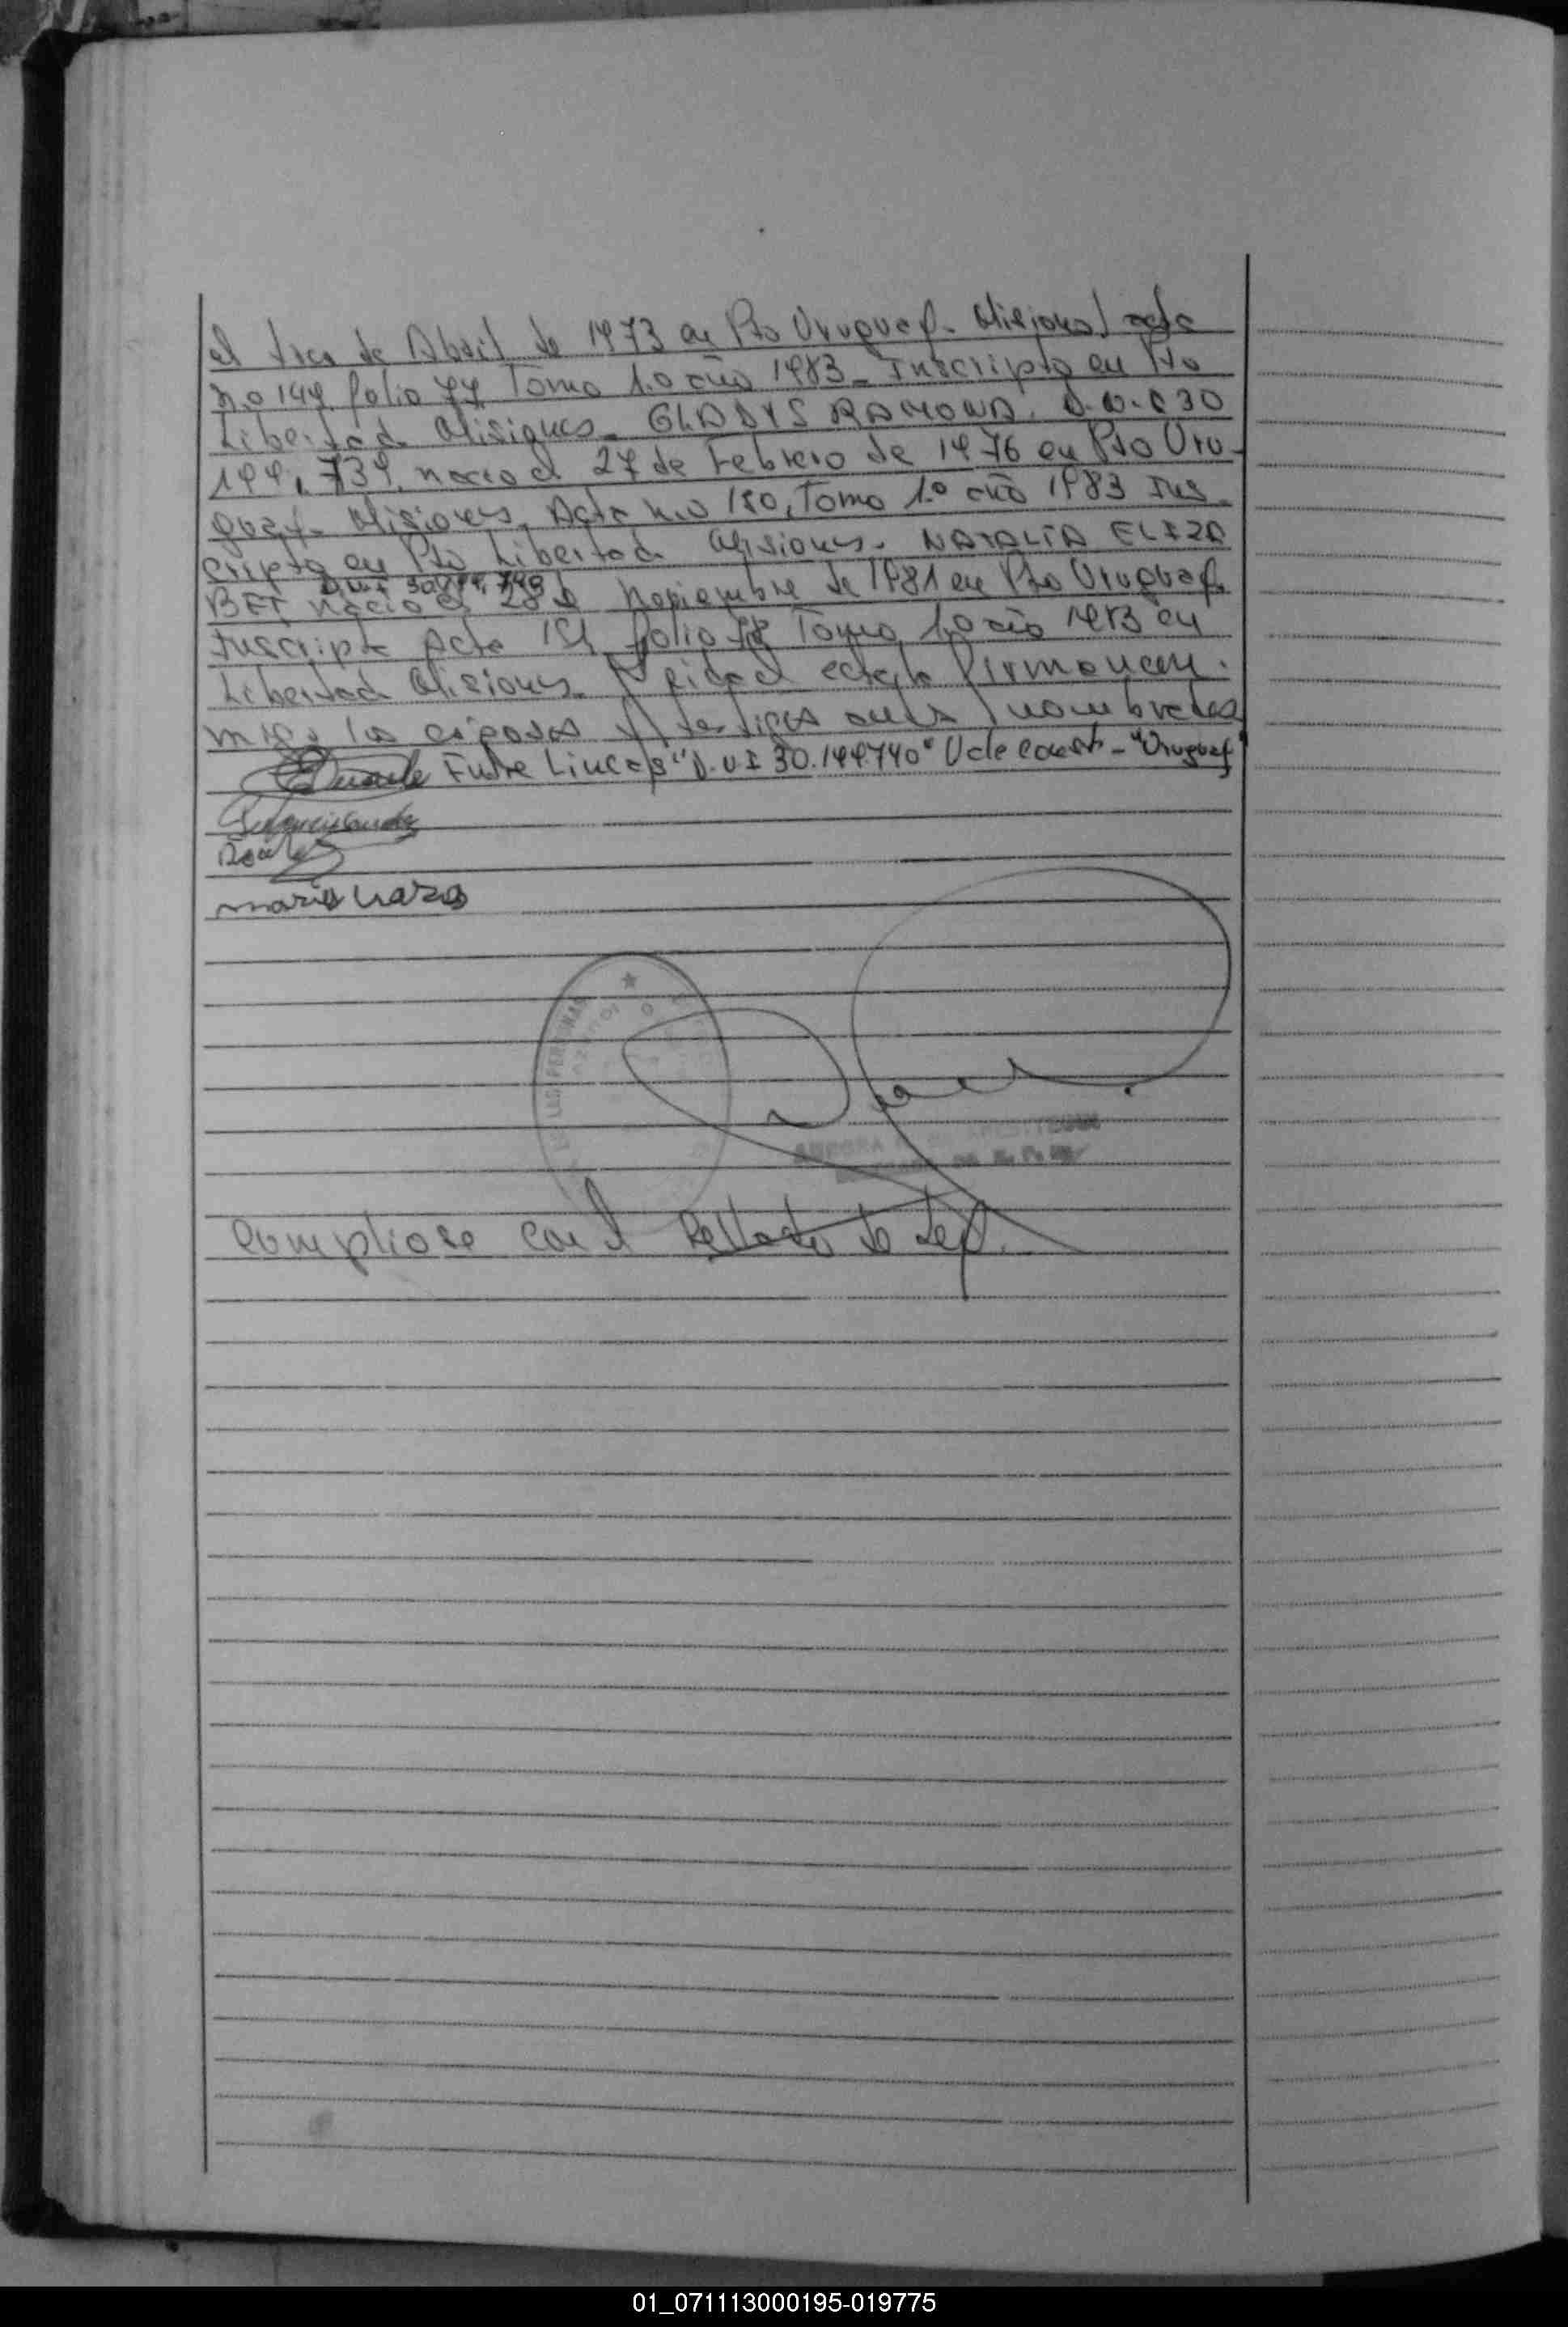 el trece de Abril de 1973 en Pto Uruguay. Misiones) acta
n.o 149 folio 77 Tomo 1.o año 1983 - Inscripta en Pto
Libertad. Misiones. GLADYS RAMONA. D.N.I 30
199.739. nacio el 27 de Febrero de 1976 en Pto Uru-
guay. Misiones. Acta n.o 150, Tomo 1.o año 1983 Ins-
cripta en Pto Libertad. Misiones. NATALIA ELIZA
D.N.I 30.199.740
BET nacio el 28 de Noviembre de 1981 en Pto Uruguay
Inscripta Acta 151 folio 78 Tomo 1.o año 1983 en
Libertad. Misiones. el acta firman con-
migo los esposos y testigos nombrados
Duarte Entre Lineas "D.N.I 30.199.740" Vale - "Uruguay"
mario
Cumpliose con el Sellado de Ley.
01_071113000195-019775